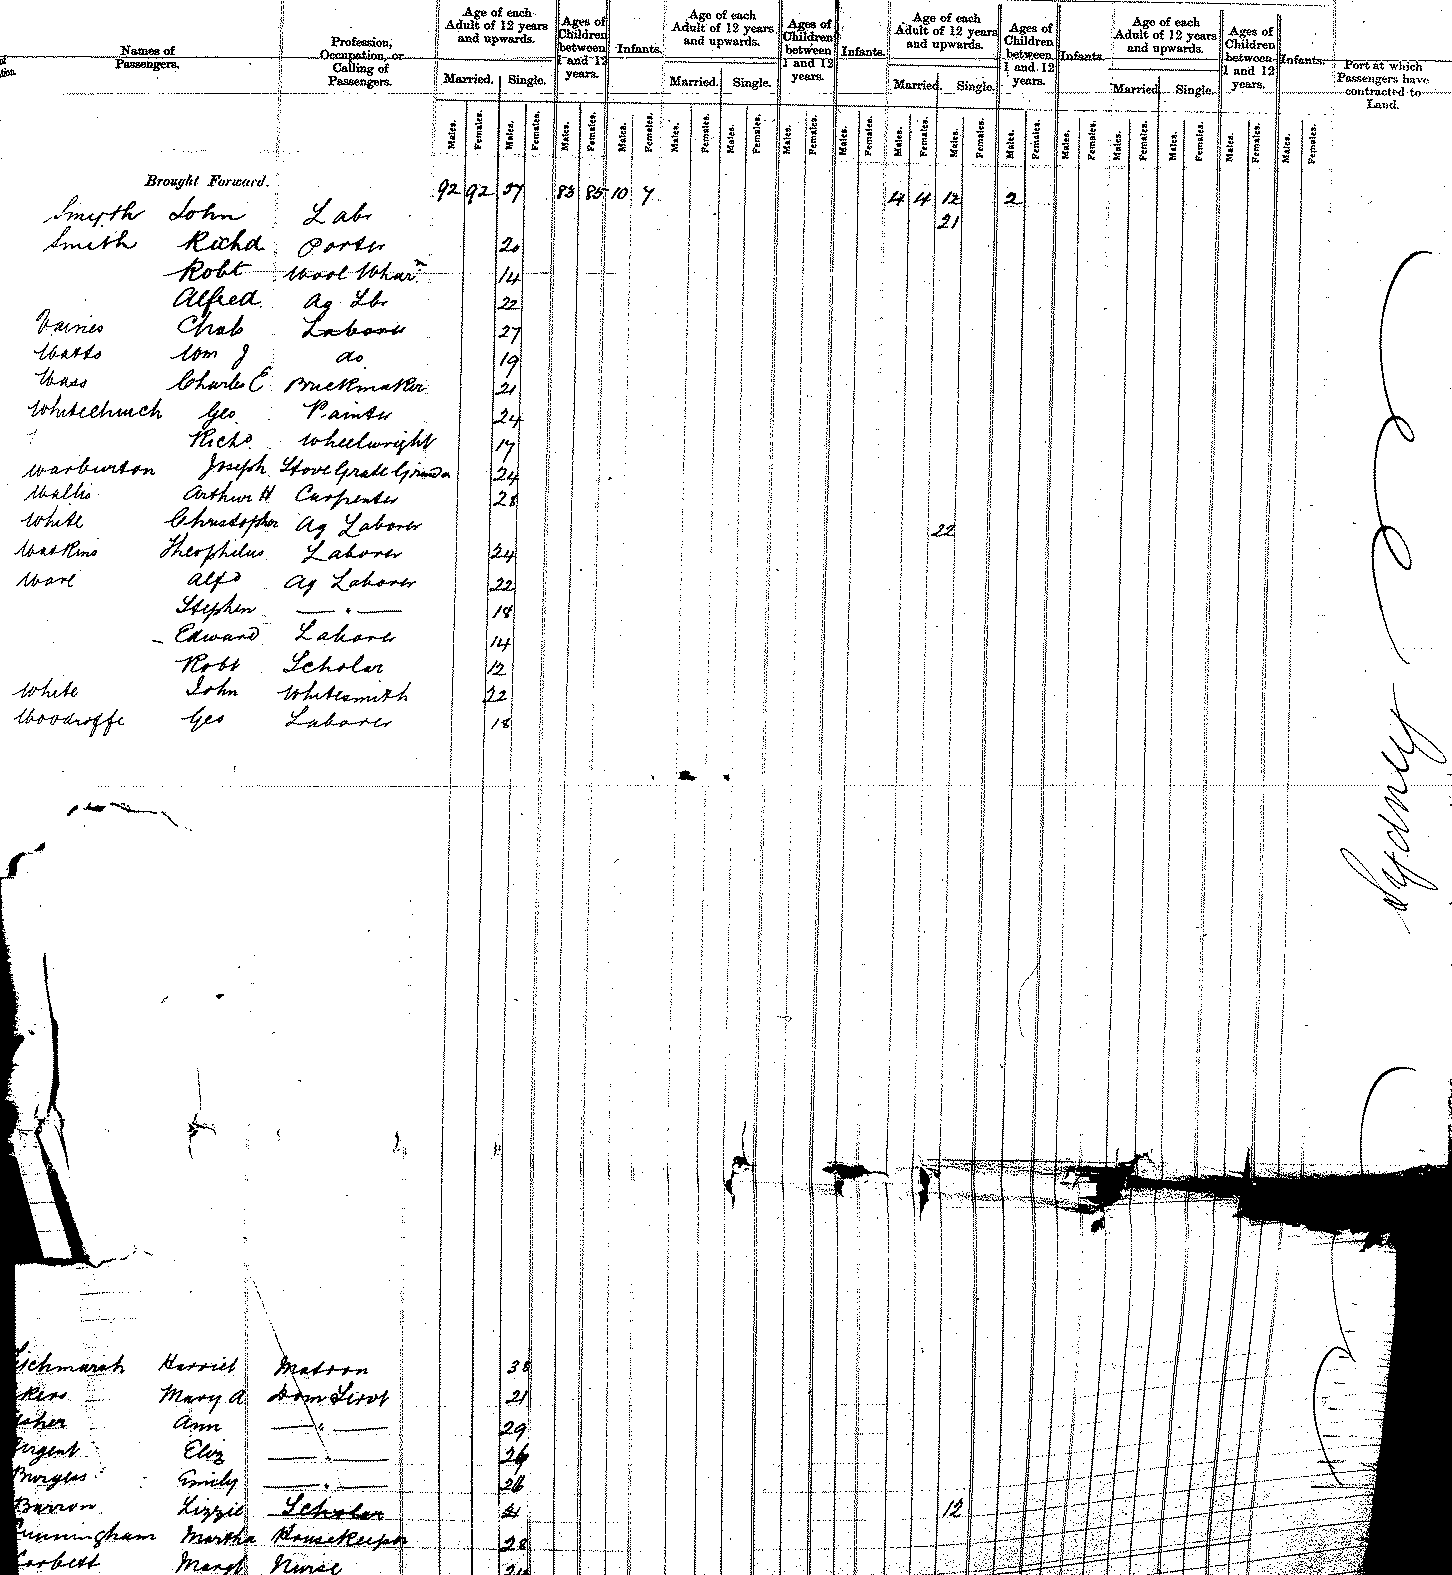 Names of Passengers.
Profession, Occupation, or Calling of Passengers.
Age of each Adult of 12 years and upwards.
Married. Single.
Ages of Children between 1 and 12 years.
Infants.
Age of each Adult of 12 years and upwards.
Married. Single.
Ages of Children between 1 and 12 years.
Infants.
Age of each Adult of 12 years and upwards.
Married. Single.
Ages of Children between 1 and 12 years.
Infants.
Age of each Adult of 12 years and upwards.
Married. Single.
Ages of Children between 1 and 12 years.
Infants.
Port at which Passengers have contracted to Land.
Males. Females. Males. Females. Males. Females. Males. Females. Males. Females. Males. Females. Males. Females. Males. Females. Males. Females. Males. Females. Males. Females. Males. Females. Males. Females. Males. Females. Males. Females. Males. Females.
Brought Forward. 92 92 37 83 85 10 7 4 4 12 2
Smyth John Labr 21
Smith Richd Porter 20
Robt Wool 14
Alfred Ag Lbr 22
Vaines Chas Laborer 27
Watts Wm J do 19
Wass Charles E Brickmaker 21
Whitechurch Geo Painter 24
Richd Wheelwright 17
Warburton Joseph Stove Grate Grinder 24
Wallis Arthur H Carpenter 28
White Christopher Ag Laborer 22
Watkins Theophilus Laborer 24
Ware Alfd Ag Laborer 22
Stephen — " — 18
Edward Laborer 14
Robt Scholar 12
White John Whitesmith 22
Woodroffe Geo Laborer 18
Sydney
Harriet Matron 38
Mary A Dom Servt 21
Ann — " — 29
Eliz — " — 26
Burgess Emily — " — 26
Barron Lizzie Scholar 12
Cunningham Martha Housekeeper 28
Corbett Margt Nurse